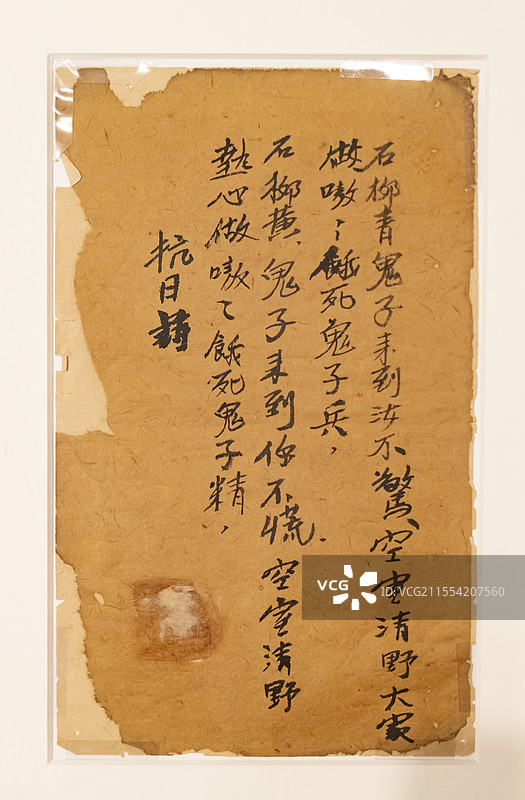 石柳青鬼子来到汝不驚、空室清野大家
做嗷々餓死鬼子兵，
石柳黄、鬼子来到你不慌．空室清野
热心做嗷々餓死鬼子精，
抗日
VCG
ID:VCG211554207560